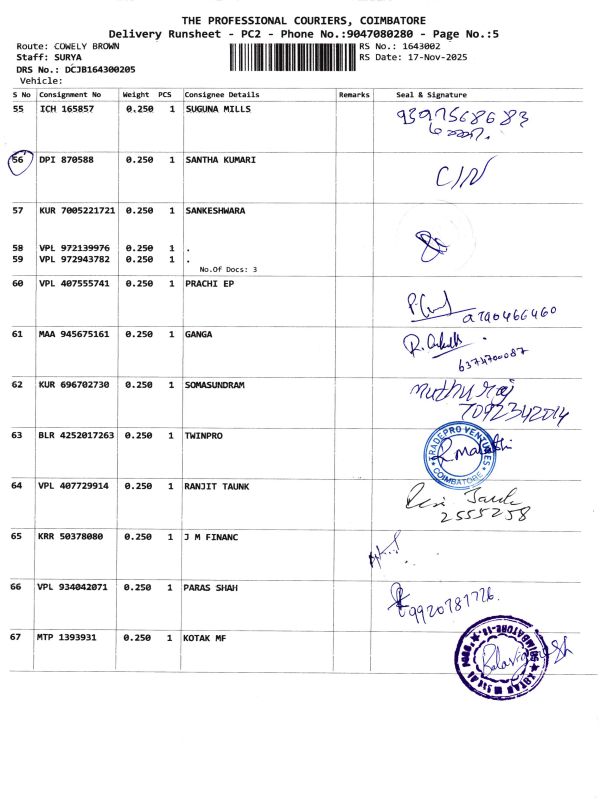 THE PROFESSIONAL COURIERS, COIMBATORE
Delivery Runsheet - PC2 - Phone No.:9047080280 - Page No.:5
Route: COWELY BROWN
RS No.: 1643002
Staff: SURYA
RS Date: 17-Nov-2025
DRS No.: DCJB164300205
Vehicle:
S No Consignment No Weight PCS Consignee Details Remarks Seal & Signature
55 ICH 165857 0.250 1 SUGUNA MILLS
56 DPI 870588 0.250 1 SANTHA KUMARI
57 KUR 7005221721 0.250 1 SANKESHWARA
58 VPL 972139976 0.250 1 .
59 VPL 972943782 0.250 1 .
No.Of Docs: 3
60 VPL 407555741 0.250 1 PRACHI EP
61 MAA 945675161 0.250 1 GANGA
6374700087
62 KUR 696702730 0.250 1 SOMASUNDRAM
muthu raj
7092342014
63 BLR 4252017263 0.250 1 TWINPRO
TRADEPRO VENTURES
COIMBATORE
64 VPL 407729914 0.250 1 RANJIT TAUNK
2555258
65 KRR 50378080 0.250 1 J M FINANC
66 VPL 934042071 0.250 1 PARAS SHAH
9920787776.
67 MTP 1393931 0.250 1 KOTAK MF